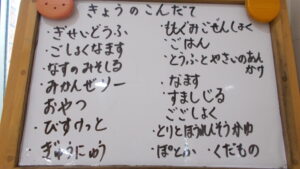 きょうのこんだて
・ぎせいどうふ
・ごしょくなます
・なすのみそしる
・みかんぜりー
おやつ
・びすけっと
・ぎゅうにゅう
ごはん
・とうふとやさいのあん
かけ
・なます
・すましじる
ごごしょく
・とりとほうれんそうかゆ
・ぽとふ ・くだもの